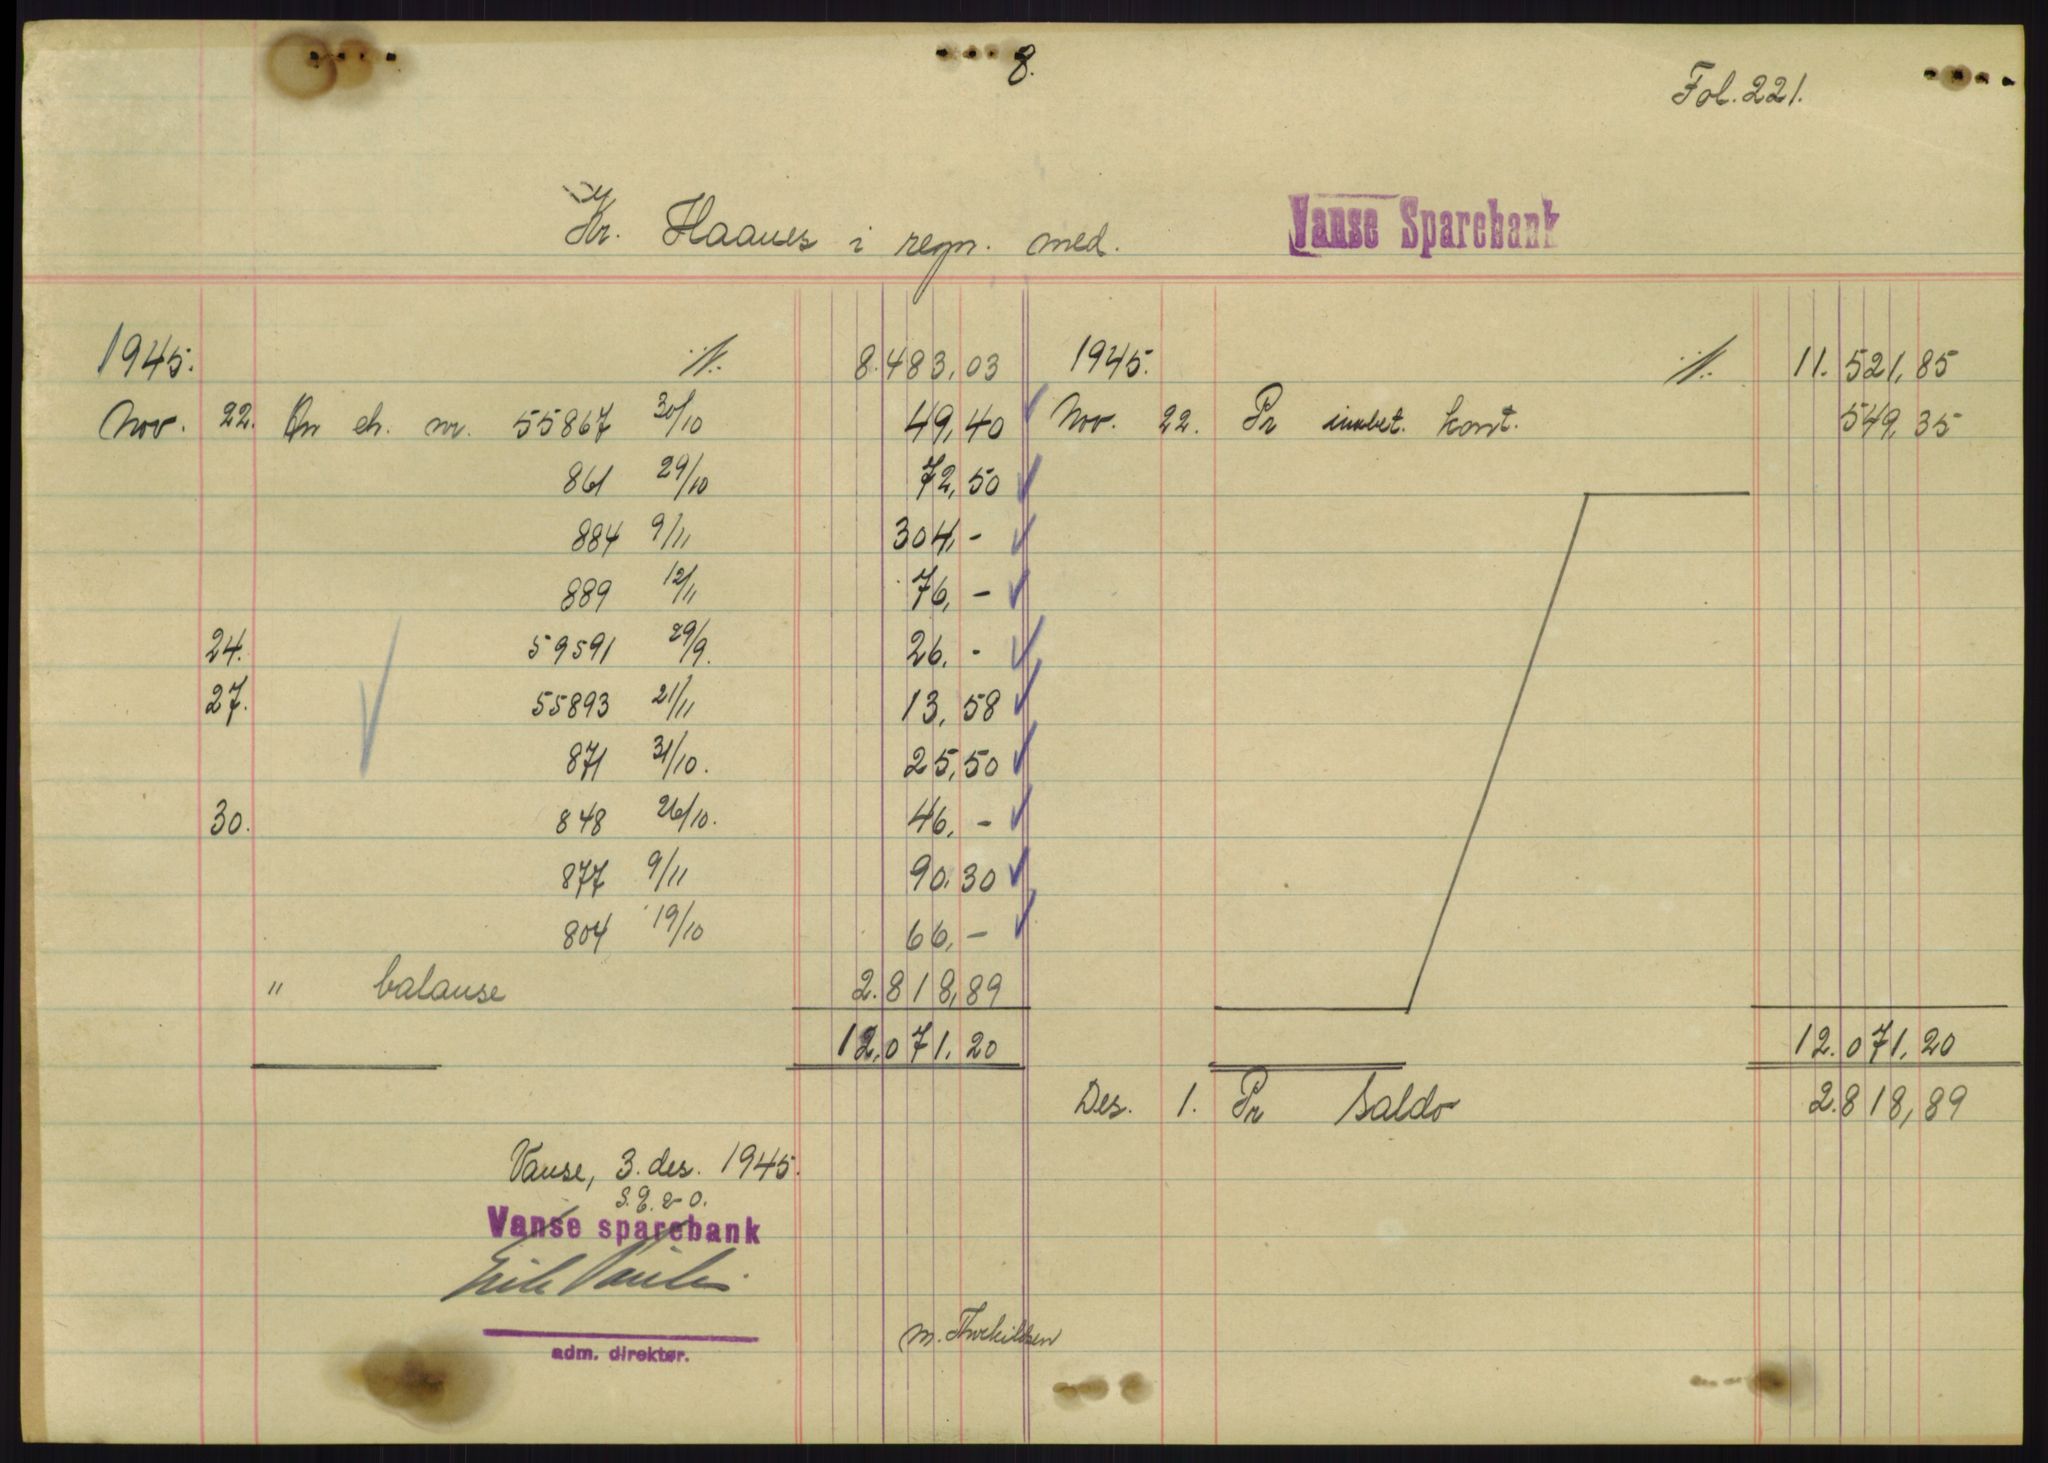 8.
Fol. 221.
Kr. Haanes i regn. med. Vanse Sparebank
1945. ·/·. 8.483,03 1945. ·/·. 11.521,85
Nov. 22. An ch. nr. 55867 30/10 49,40 Nov. 22. Pr innbet. kont. 549,35
861 29/10 72,50
884 9/11 304,-
889 12/11 76,-
24. 59591 29/9. 26,-
27. 55893 21/11 13,58
871 31/10. 25,50
30. 848 26/10. 46,-
877 9/11 90,30
804 19/10 66,-
" balanse 2.818,89
12.071,20 12.071,20
Des. 1. Pr Saldo 2.818,89
Vanse, 3. des. 1945.
S.E. & O.
Vanse sparebank
adm. direktør.